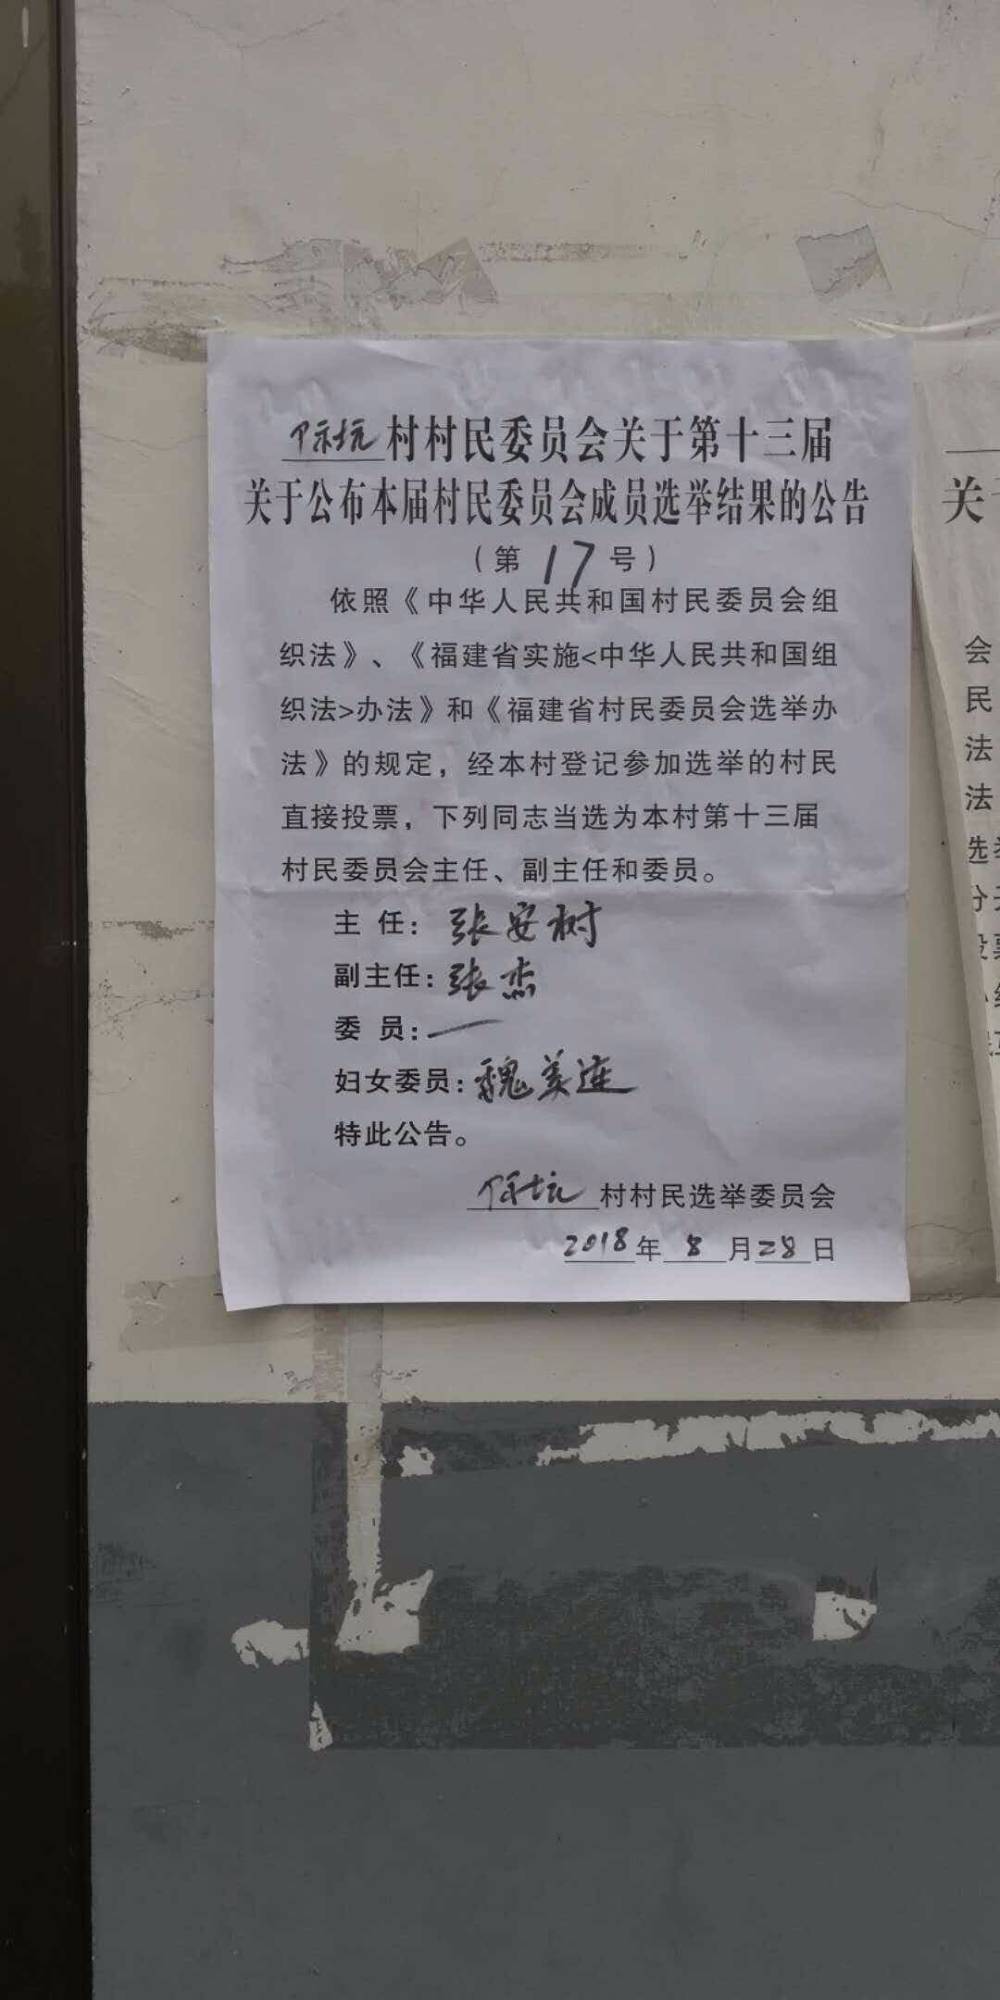 坑村村民委员会关于第十三届
关于公布本届村民委员会成员选举结果的公告
（第 17 号）
依照《中华人民共和国村民委员会组
织法》、《福建省实施<中华人民共和国组
织法>办法》和《福建省村民委员会选举办
法》的规定，经本村登记参加选举的村民
直接投票，下列同志当选为本村第十三届
村民委员会主任、副主任和委员。
主 任：张安树
副主任：张杰
委 员：一
妇女委员：魏美连
特此公告。
坑 村村民选举委员会
2018年 8 月28日
关
会
民
法
法
选